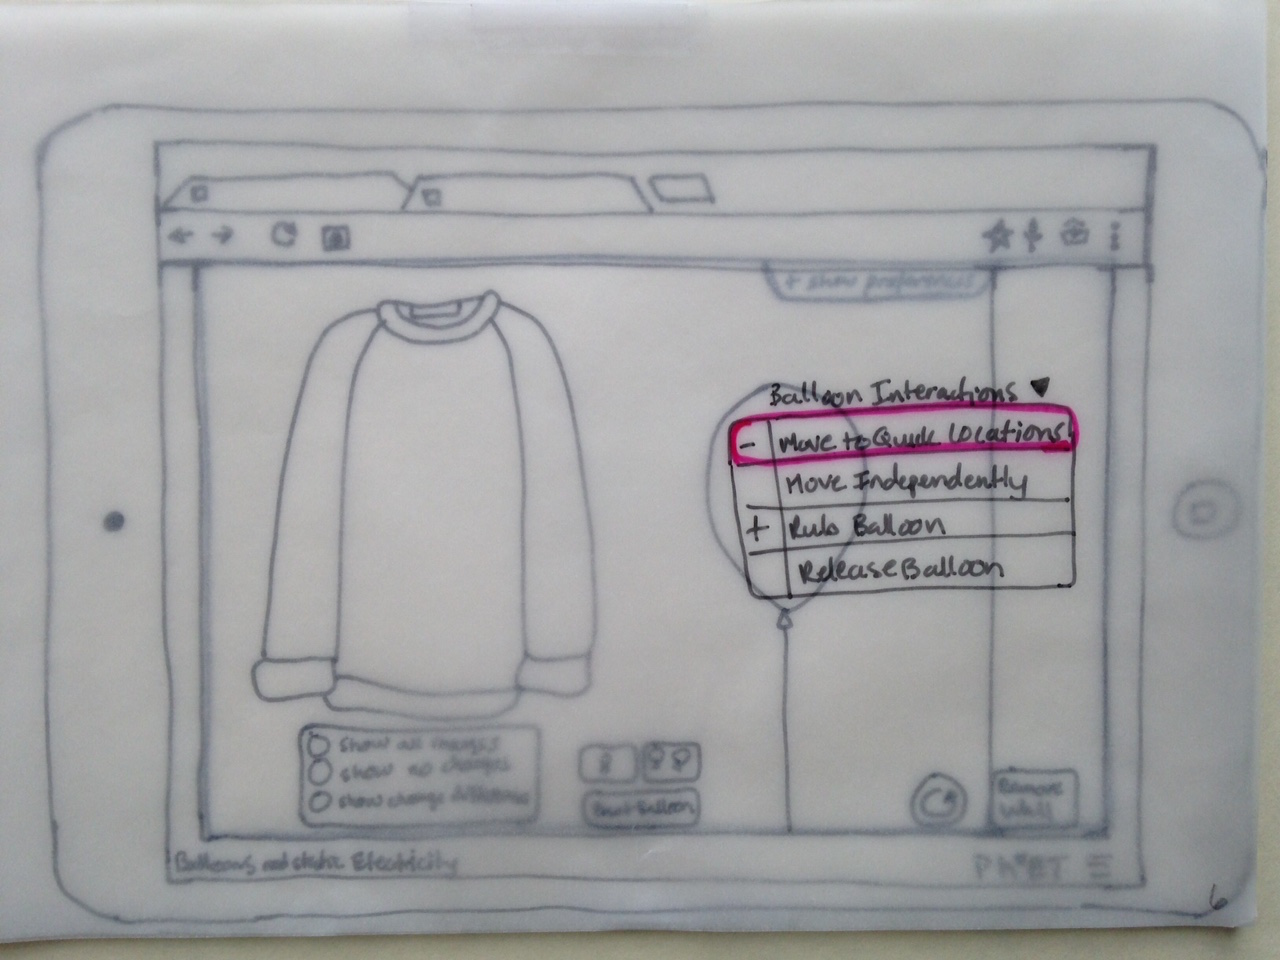 + show preferences
Balloon Interactions ▼
- Move to Quick Locations
Move Independently
+ Rub Balloon
Release Balloon
show all charges
show no charges
show charge differences
Reset Balloon
Remove
Wall
Balloons and static Electricity
PhET
6